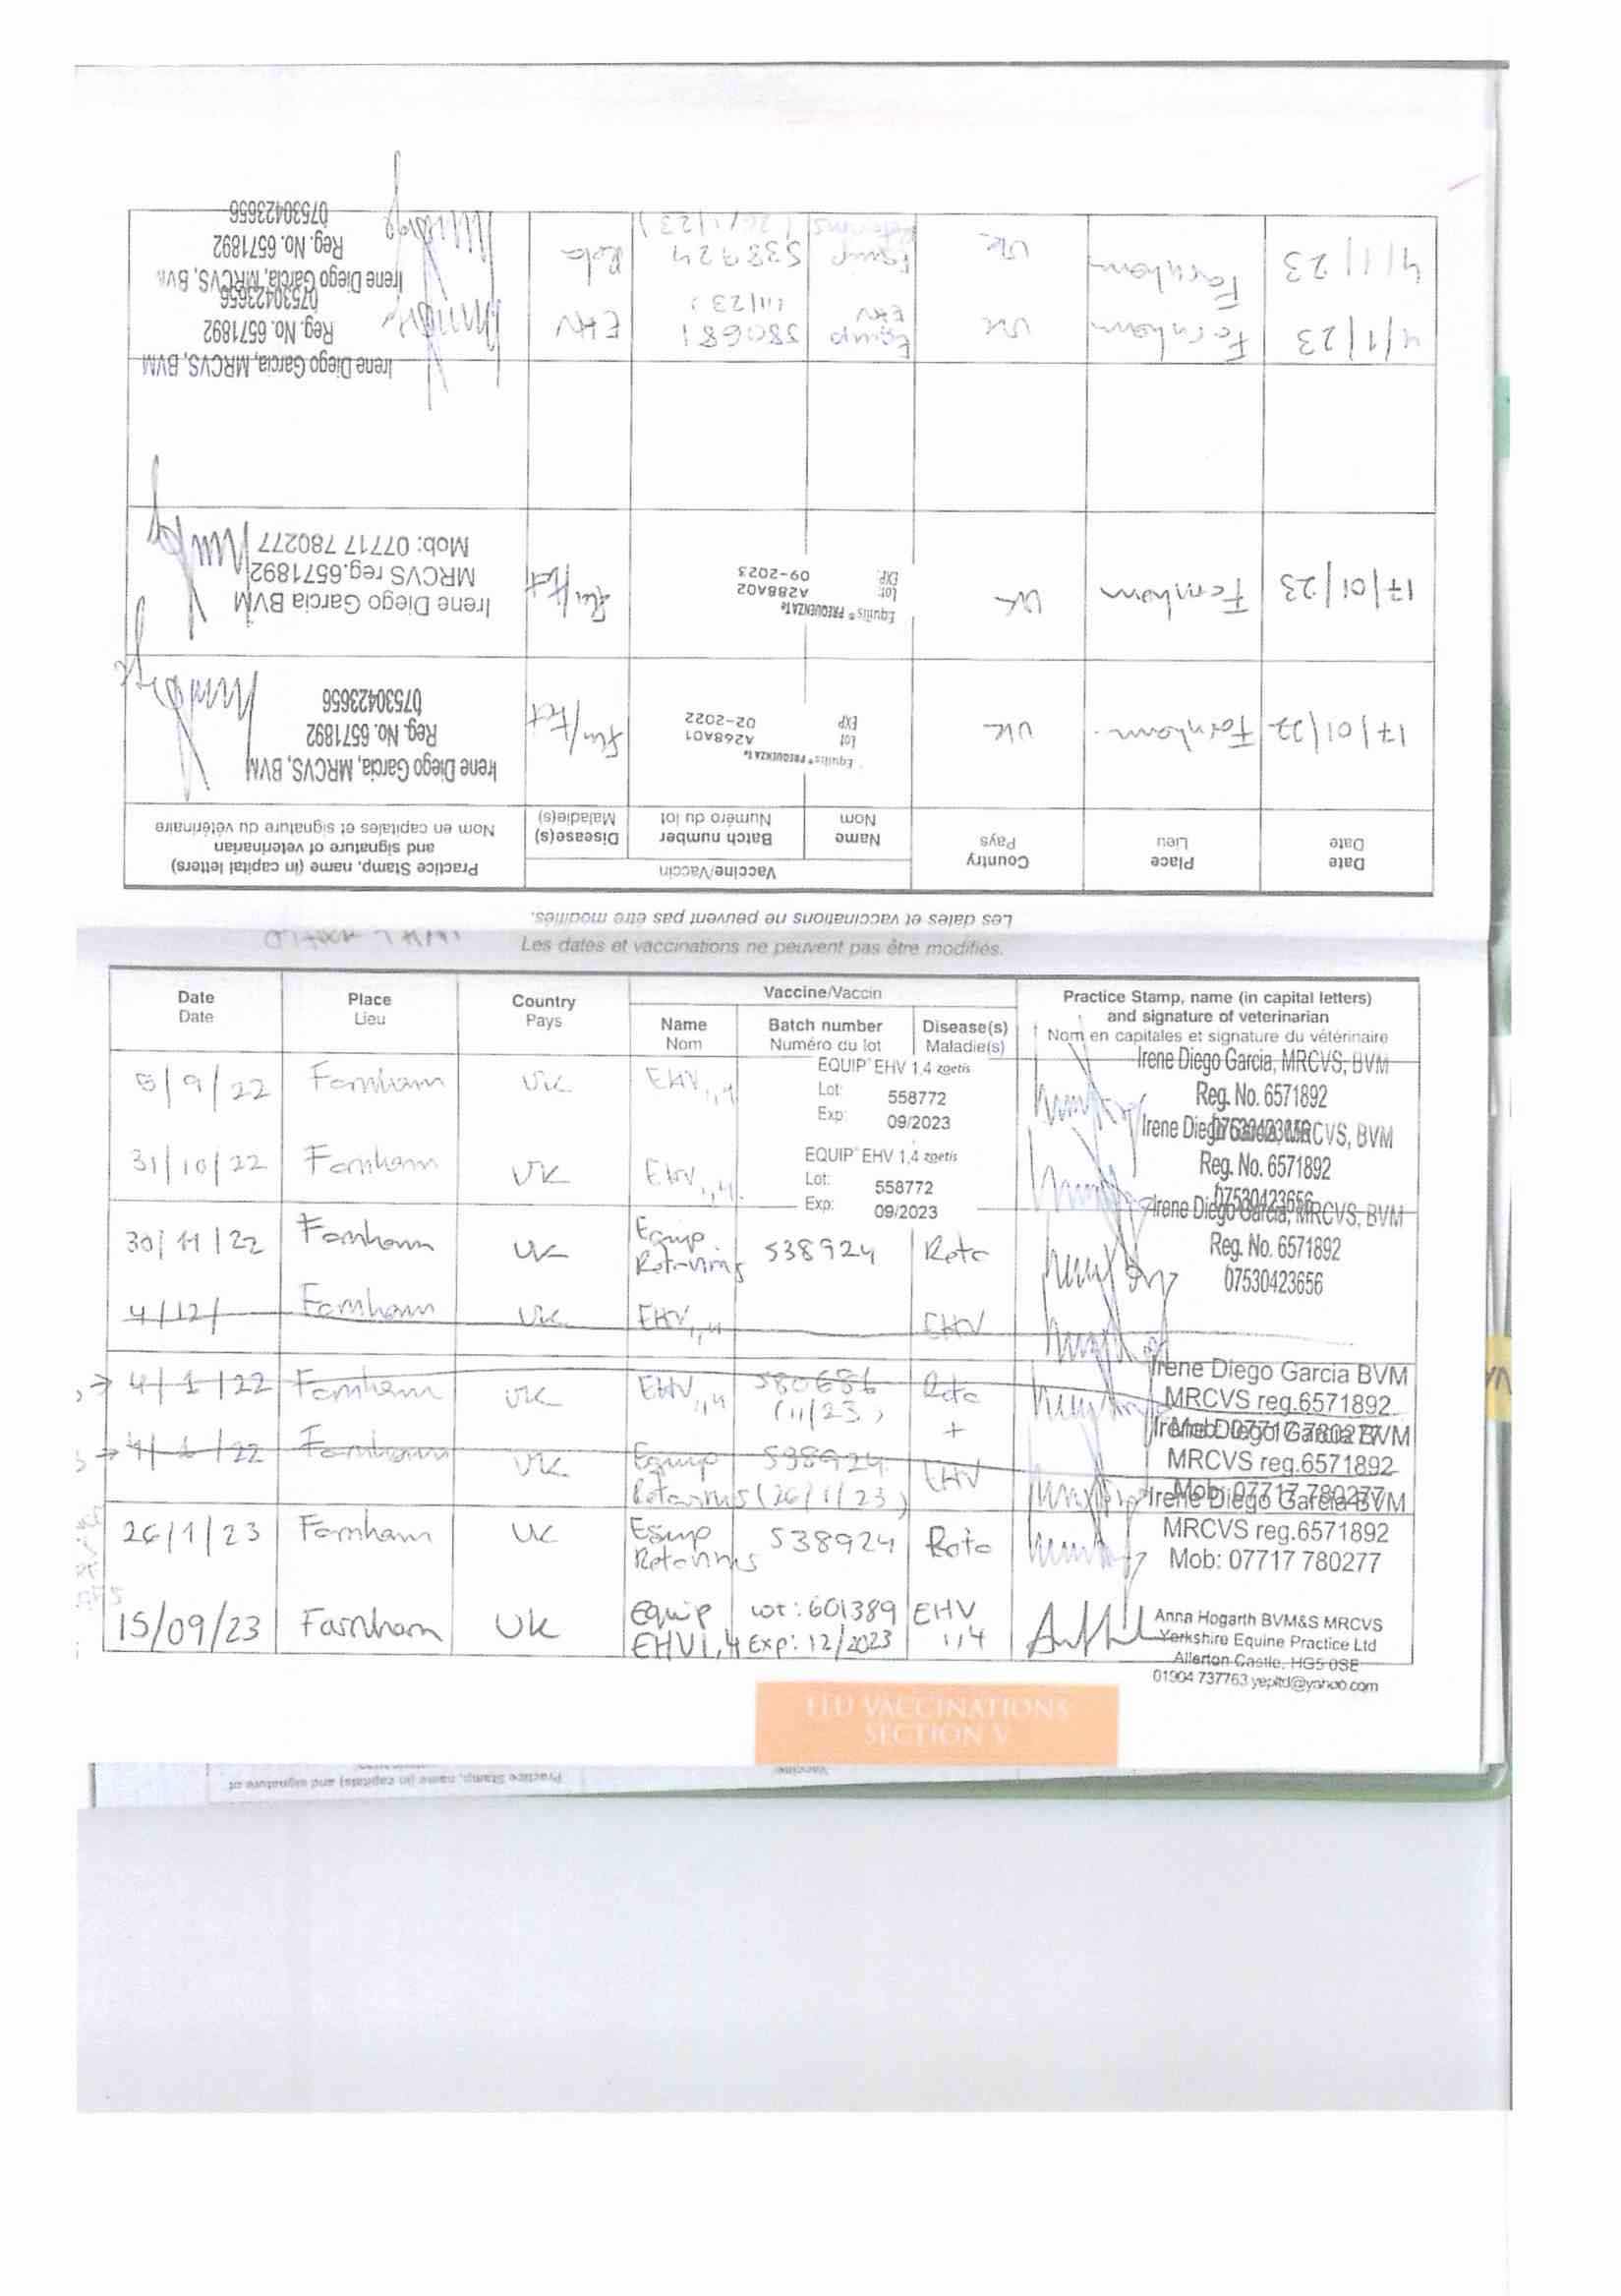 Les dates et vaccinations ne peuvent pas être modifiés.
Date Date
Place Lieu
Country Pays
Vaccine/Vaccin
Name Nom
Batch number Numéro du lot
Disease(s) Maladie(s)
Practice Stamp, name (in capital letters)
and signature of veterinarian
Nom en capitales et signature du vétérinaire
17/01/22 Farnham UK Equilis® PREQUENZA Te Lot A268A01 EXP 02-2022 Flu/Tet
Irene Diego Garcia, MRCVS, BVM
Reg. No. 6571892
07530423656
17/01/23 Farnham UK Equilis® PREQUENZA Te Lot: A288A02 EXP: 09-2023 Flu/Tet
Irene Diego Garcia BVM
MRCVS reg.6571892
Mob: 07717 780277
4/1/23 Farnham UK Equip EHV 580681 (11/23) EHV
Irene Diego Garcia, MRCVS, BVM
Reg. No. 6571892
07530423656
4/1/23 Farnham UK Equip Rotavirus 538924 (26/1/23) Rota
Irene Diego Garcia, MRCVS, BVM
Reg. No. 6571892
07530423656
Les dates et vaccinations ne peuvent pas être modifiés.
Date Date
Place Lieu
Country Pays
Vaccine/Vaccin
Name Nom
Batch number Numéro du lot
Disease(s) Maladie(s)
Practice Stamp, name (in capital letters)
and signature of veterinarian
Nom en capitales et signature du vétérinaire
5/9/22 Farnham UK EHV 1,4 EQUIP® EHV 1,4 zoetis Lot: 558772 Exp: 09/2023
Irene Diego Garcia, MRCVS, BVM
Reg. No. 6571892
07530423656
31/10/22 Farnham UK EHV 1,4. EQUIP® EHV 1,4 zoetis Lot: 558772 Exp: 09/2023
Irene Diego Garcia, MRCVS, BVM
Reg. No. 6571892
07530423656
30/11/22 Farnham UK Equip Rotavirus 538924 Rota
Irene Diego Garcia, MRCVS, BVM
Reg. No. 6571892
07530423656
4/12/ Farnham UK EHV 1,4 EHV
4/1/22 Farnham UK EHV 1,4 580686 (11/23) Rota +
Irene Diego Garcia BVM
MRCVS reg.6571892
Mob: 07717 780277
4/1/22 Farnham UK Equip Rotavirus 538924 (26/1/23) EHV
Irene Diego Garcia BVM
MRCVS reg.6571892
Mob: 07717 780277
26/1/23 Farnham UK Equip Rotavirus 538924 Rota
Irene Diego Garcia BVM
MRCVS reg.6571892
Mob: 07717 780277
15/09/23 Farnham UK Equip EHV 1,4 Lot: 601389 Exp: 12/2023 EHV 1,4
Anna Hogarth BVM&S MRCVS
Yorkshire Equine Practice Ltd
Allerton Castle, HG5 0SE
01904 737763 yepltd@yahoo.com
FLU VACCINATIONS
SECTION V
Vaccine
Practice Stamp, name (in capitals) and signature of